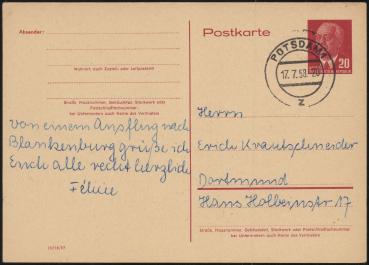 Absender:
Wohnort, auch Zustell- oder Leitpostamt
Straße, Hausnummer, Gebäudeteil, Stockwerk oder
Postschließfachnummer;
bei Untermietern auch Name des Vermieters
von einem Ausflug nach
Blankenburg grüße ich
Euch alle recht herzlich
Felicie
Postkarte
POTSDAM
17.7.58
Z
20
Herrn
Erich Krautschneider
Dortmund
Hans Holbeinstr. 17
Straße, Hausnummer, Gebäudeteil, Stockwerk oder Postschließfachnummer;
bei Untermietern auch Name des Vermieters